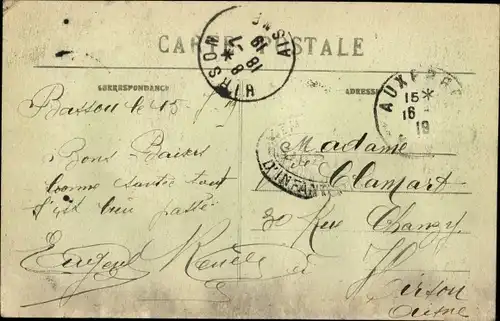 CARTE POSTALE
CORRESPONDANCE
ADRESSE
HIRSON
AISNE
18
AUXERRE
15 *
16
19
D'INFANT
Bassou le 15
Bons Baisers
bonne santé tout
s'est bien passé
Madame
Clamart
30 Rue Chanzy
Hirson
Aisne